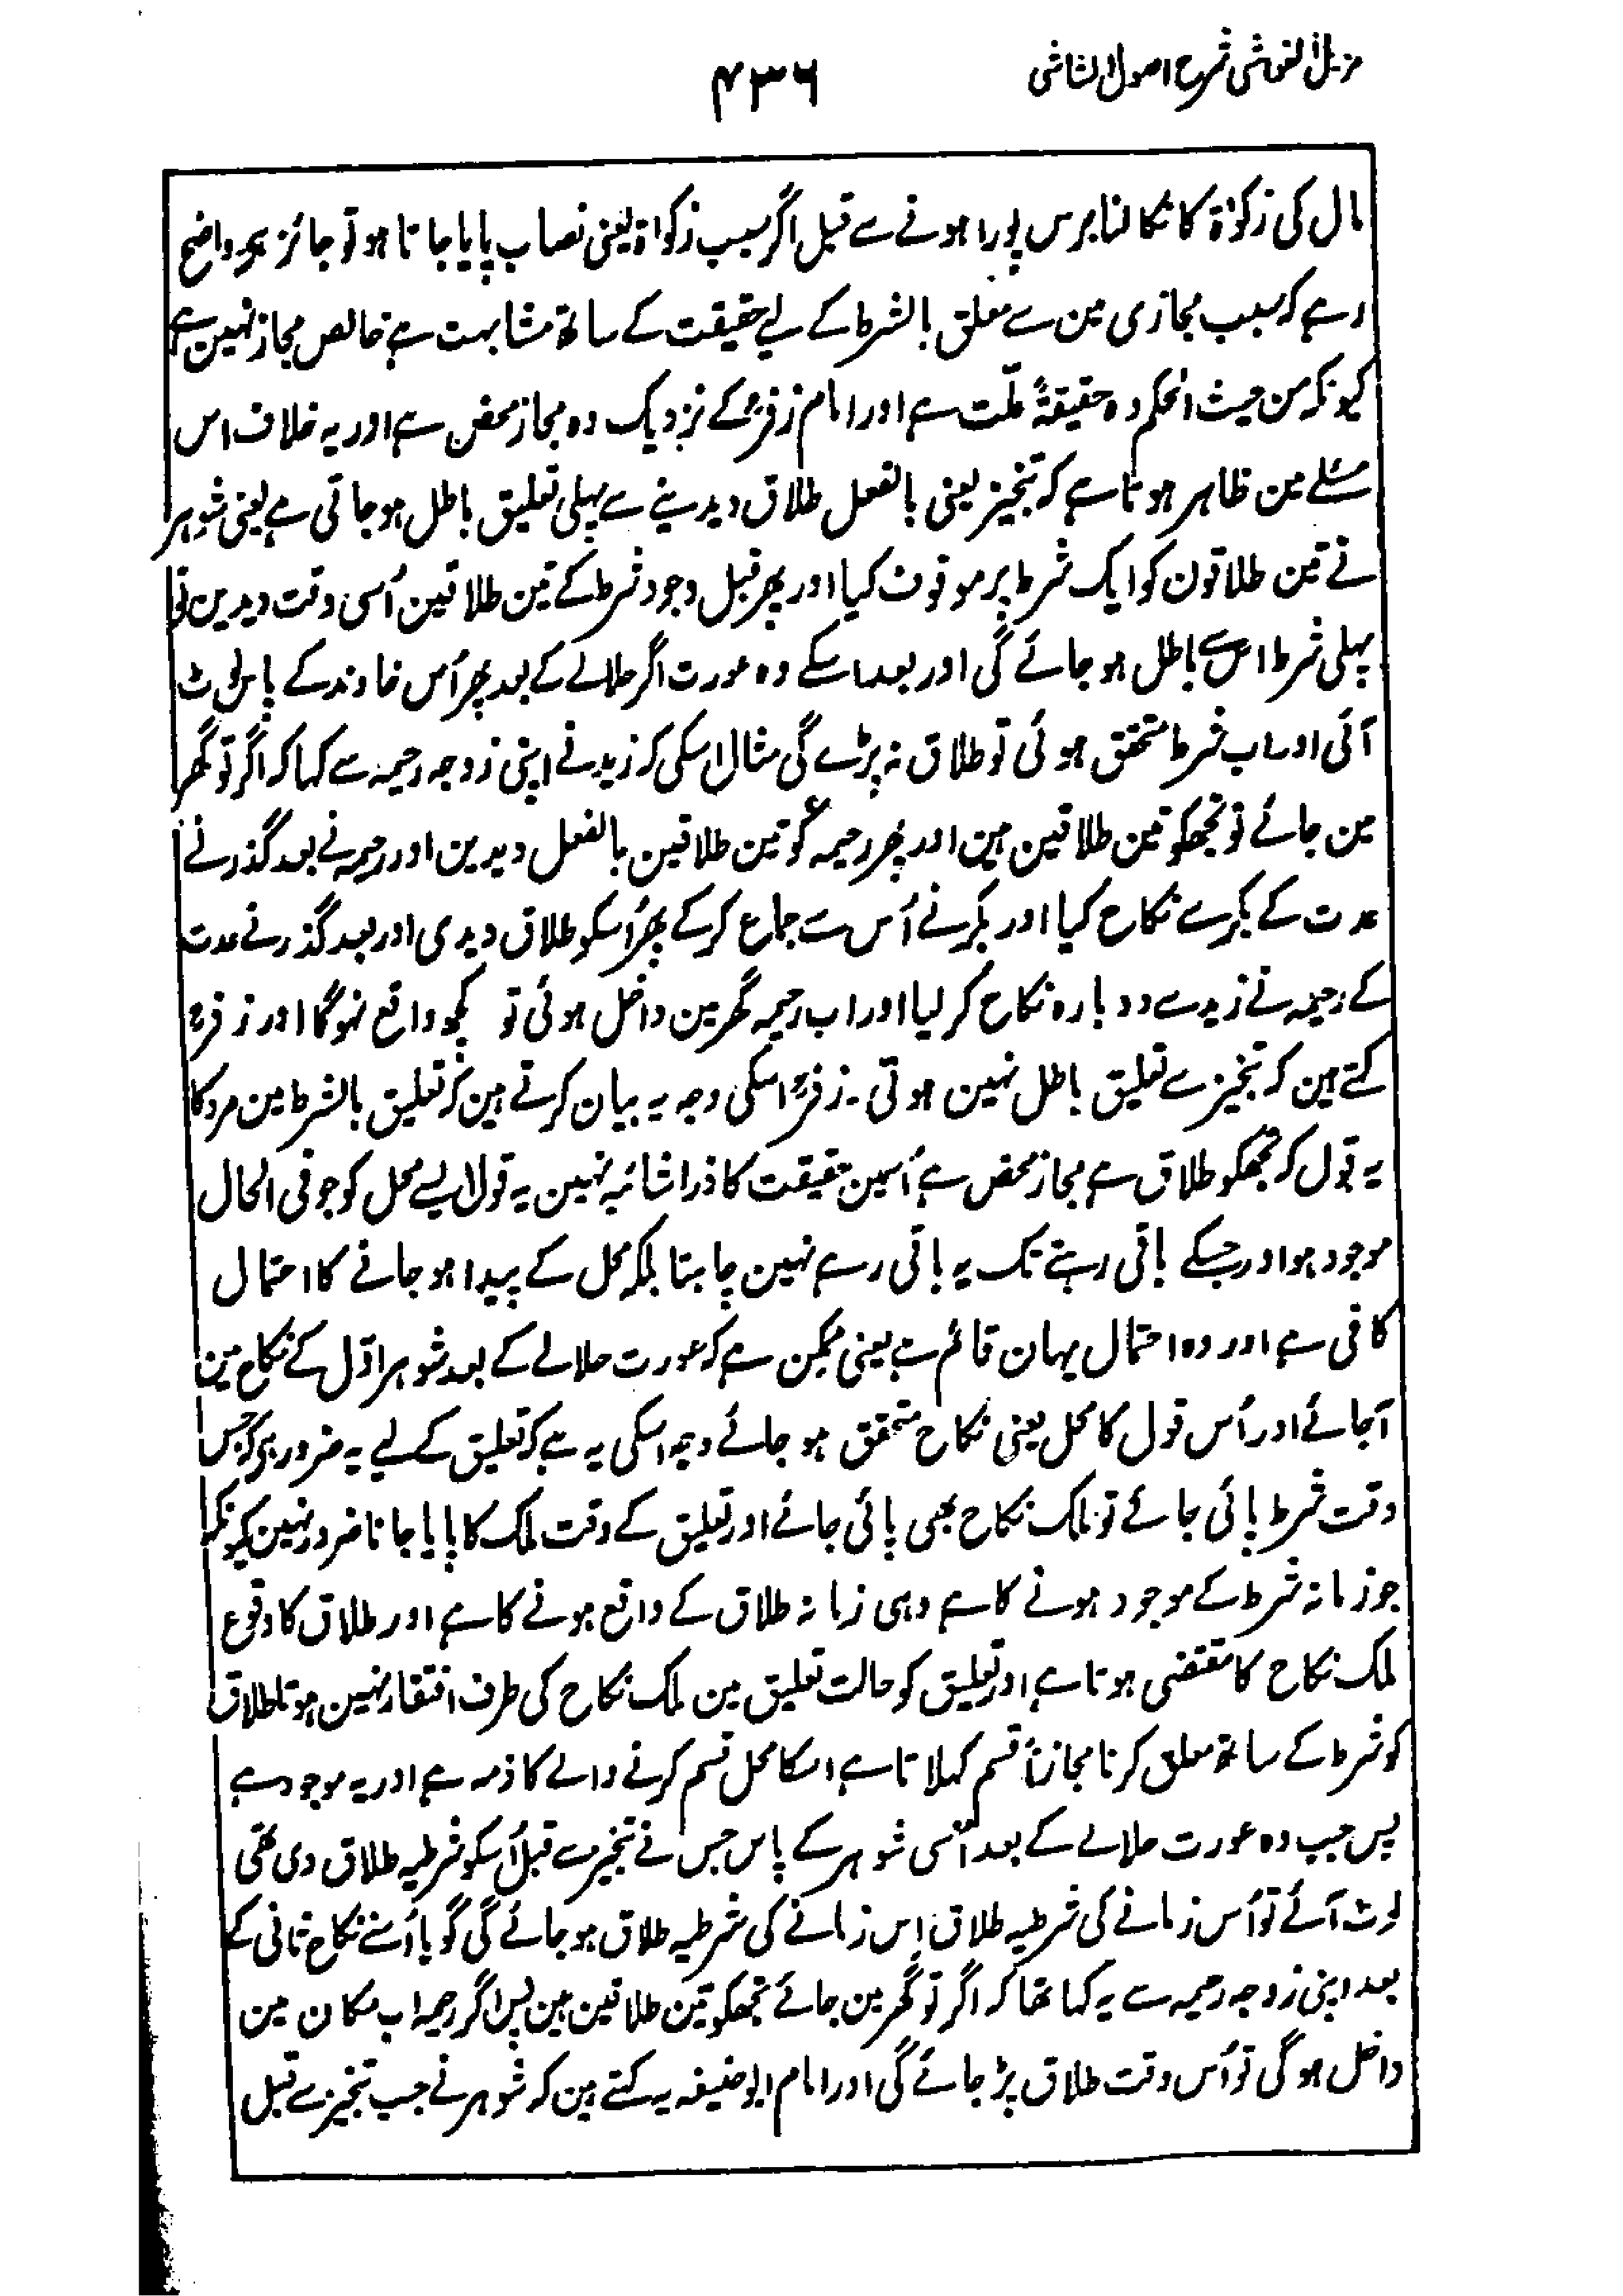 مزیل الغواشی شرح اصول الشاشی
۴۳۶
مال کی زکوٰۃ کا نکالنا برس پورا ہونے سے قبل اگر سبب زکواۃ یعنی نصاب پایا جاتا ہو تو جائز ہی واضح
رہے کہ سبب مجازی مین سے معلق بالشرط کے لیے حقیقت کے ساتھ مشابہت ہے خالص مجاز نہین ہے
کیونکہ من حیث الحکم وہ حقیقۃً علّت ہے اور امام زفرؒ کے نزدیک وہ مجاز محض ہے اور یہ خلاف اس
مسئلے مین ظاہر ہوتا ہے کہ تنجیز یعنی بالفعل طلاق دیدینے سے پہلی تعلیق باطل ہو جاتی ہے یعنی شوہر
نے تین طلاقون کو ایک شرط پر موقوف کیا اور پھر قبل وجود شرط کے تین طلاقین اُسی وقت دیدین تو
پہلی شرط اس سے باطل ہو جائے گی اور بعد اسکے وہ عورت اگر حلالے کے بعد پھر اُس خاوند کے پاس لوٹ
آئی اور اب شرط متحقق ہوئی تو طلاق نہ پڑے گی مثال اسکی کہ زید نے اپنی زوجہ رحیمہ سے کہا کہ اگر تو گھر
مین جائے تو تجھکو تین طلاقین ہین اور پھر رحیمہ کو تین طلاقین بالفعل دیدین اور رحیمہ نے بعد گذرنے
عدت کے بکر سے نکاح کیا اور بکر نے اُس سے جماع کرکے پھر اُسکو طلاق دیدی اور بعد گذرنے عدت
کے رحیمہ نے زید سے دوبارہ نکاح کر لیا اور اب رحیمہ گھر مین داخل ہوئی تو کچھ واقع نہوگا اور زفرؒ
کہتے ہین کہ تنجیز سے تعلیق باطل نہین ہوتی۔ زفرؒ اسکی وجہ یہ بیان کرتے ہین کہ تعلیق بالشرط مین مرد کا
یہ قول کہ تجھکو طلاق ہے مجاز محض ہے اُسمین حقیقت کا ذرا شائبہ نہین یہ قول ایسے محل کو جو فی الحال
موجود ہو اور جسکے باقی رہتے تک یہ باقی رہے نہین چاہتا بلکہ محل کے پیدا ہو جانے کا احتمال
کافی ہے اور وہ احتمال یہان قائم ہے یعنی ممکن ہے کہ عورت حلالے کے بعد شوہر اوّل کے نکاح مین
آجائے اور اُس قول کا محل یعنی نکاح متحقق ہو جائے وجہ اسکی یہ ہے کہ تعلیق کے لیے یہ ضرور ہی کہ جس
وقت شرط پائی جائے تو ملک نکاح بھی پائی جائے اور تعلیق کے وقت ملک کا پایا جانا ضرور نہین کیونکہ
جو زمانہ شرط کے موجود ہونے کا ہے وہی زمانہ طلاق کے واقع ہونے کا ہے اور طلاق کا وقوع
ملک نکاح کا مقتضی ہوتا ہے اور تعلیق کو حالت تعلیق مین ملک نکاح کی طرف افتقار نہین ہوتا طلاق
کو شرط کے ساتھ معلق کرنا مجازاً قسم کہلاتا ہے اسکا محل قسم کرنے والے کا ذمہ ہے اور یہ موجود ہے
پس جب وہ عورت حلالے کے بعد اُسی شوہر کے پاس جس نے تنجیز سے قبل اُسکو شرطیہ طلاق دی تھی
لوٹ آئے تو اُس زمانے کی شرطیہ طلاق اِس زمانے کی شرطیہ طلاق ہو جائے گی گویا اُسنے نکاح ثانی کے
بعد اپنی زوجہ رحیمہ سے یہ کہا تھا کہ اگر تو گھر مین جائے تجھکو تین طلاقین ہین پس اگر رحیمہ اب مکان مین
داخل ہوگی تو اُس وقت طلاق پڑ جائے گی اور امام ابو حنیفہ یہ کہتے ہین کہ شوہر نے جب تنجیز سے قبل